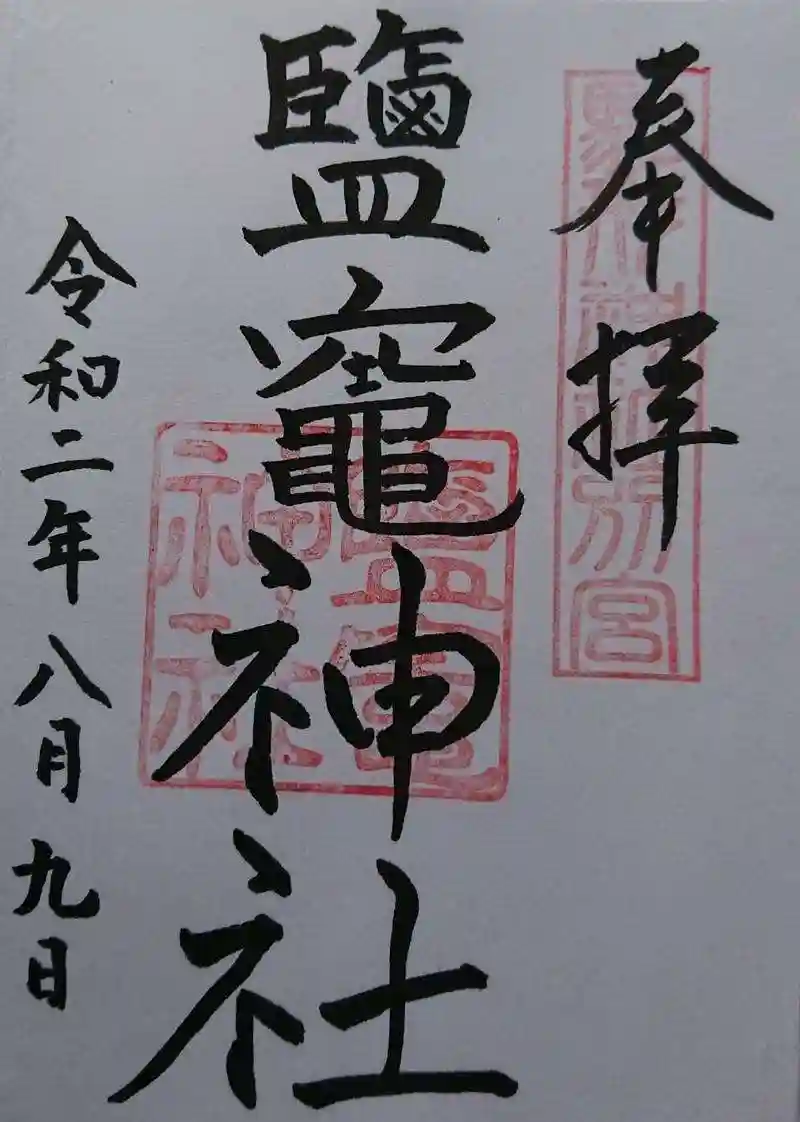 奉拝
別宮
鹽竈神社
鹽竈
神社
令和二年八月九日